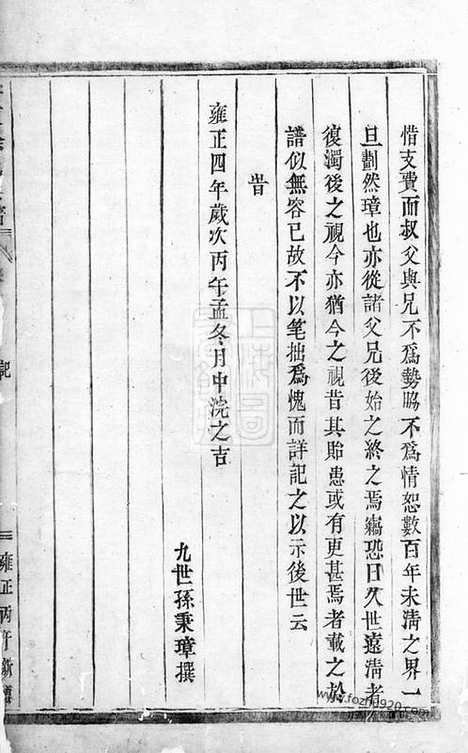 惜支費而叔父與兄不爲勢脇不爲情恕數百年未清之界一
旦劃然璋也亦從諸父兄後始之終之焉竊恐日久世遠清者
復濁後之視今亦猶今之視昔其貽患或有更甚焉者載之於
譜似無容已故不以笔拙爲愧而詳記之以示後世云
旹
雍正四年歲次丙午孟冬月中浣之吉
九世孫秉璋撰
記
雍正丙午新
www.fozhu920.com